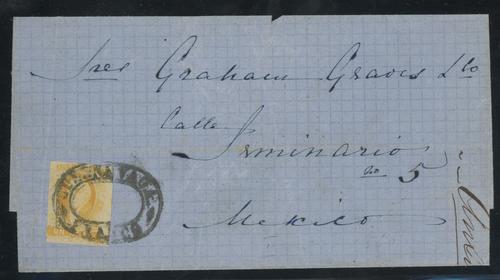 Sres Graham Graves &Co
Calle
Seminario
No 5
Mexico
FRANCO